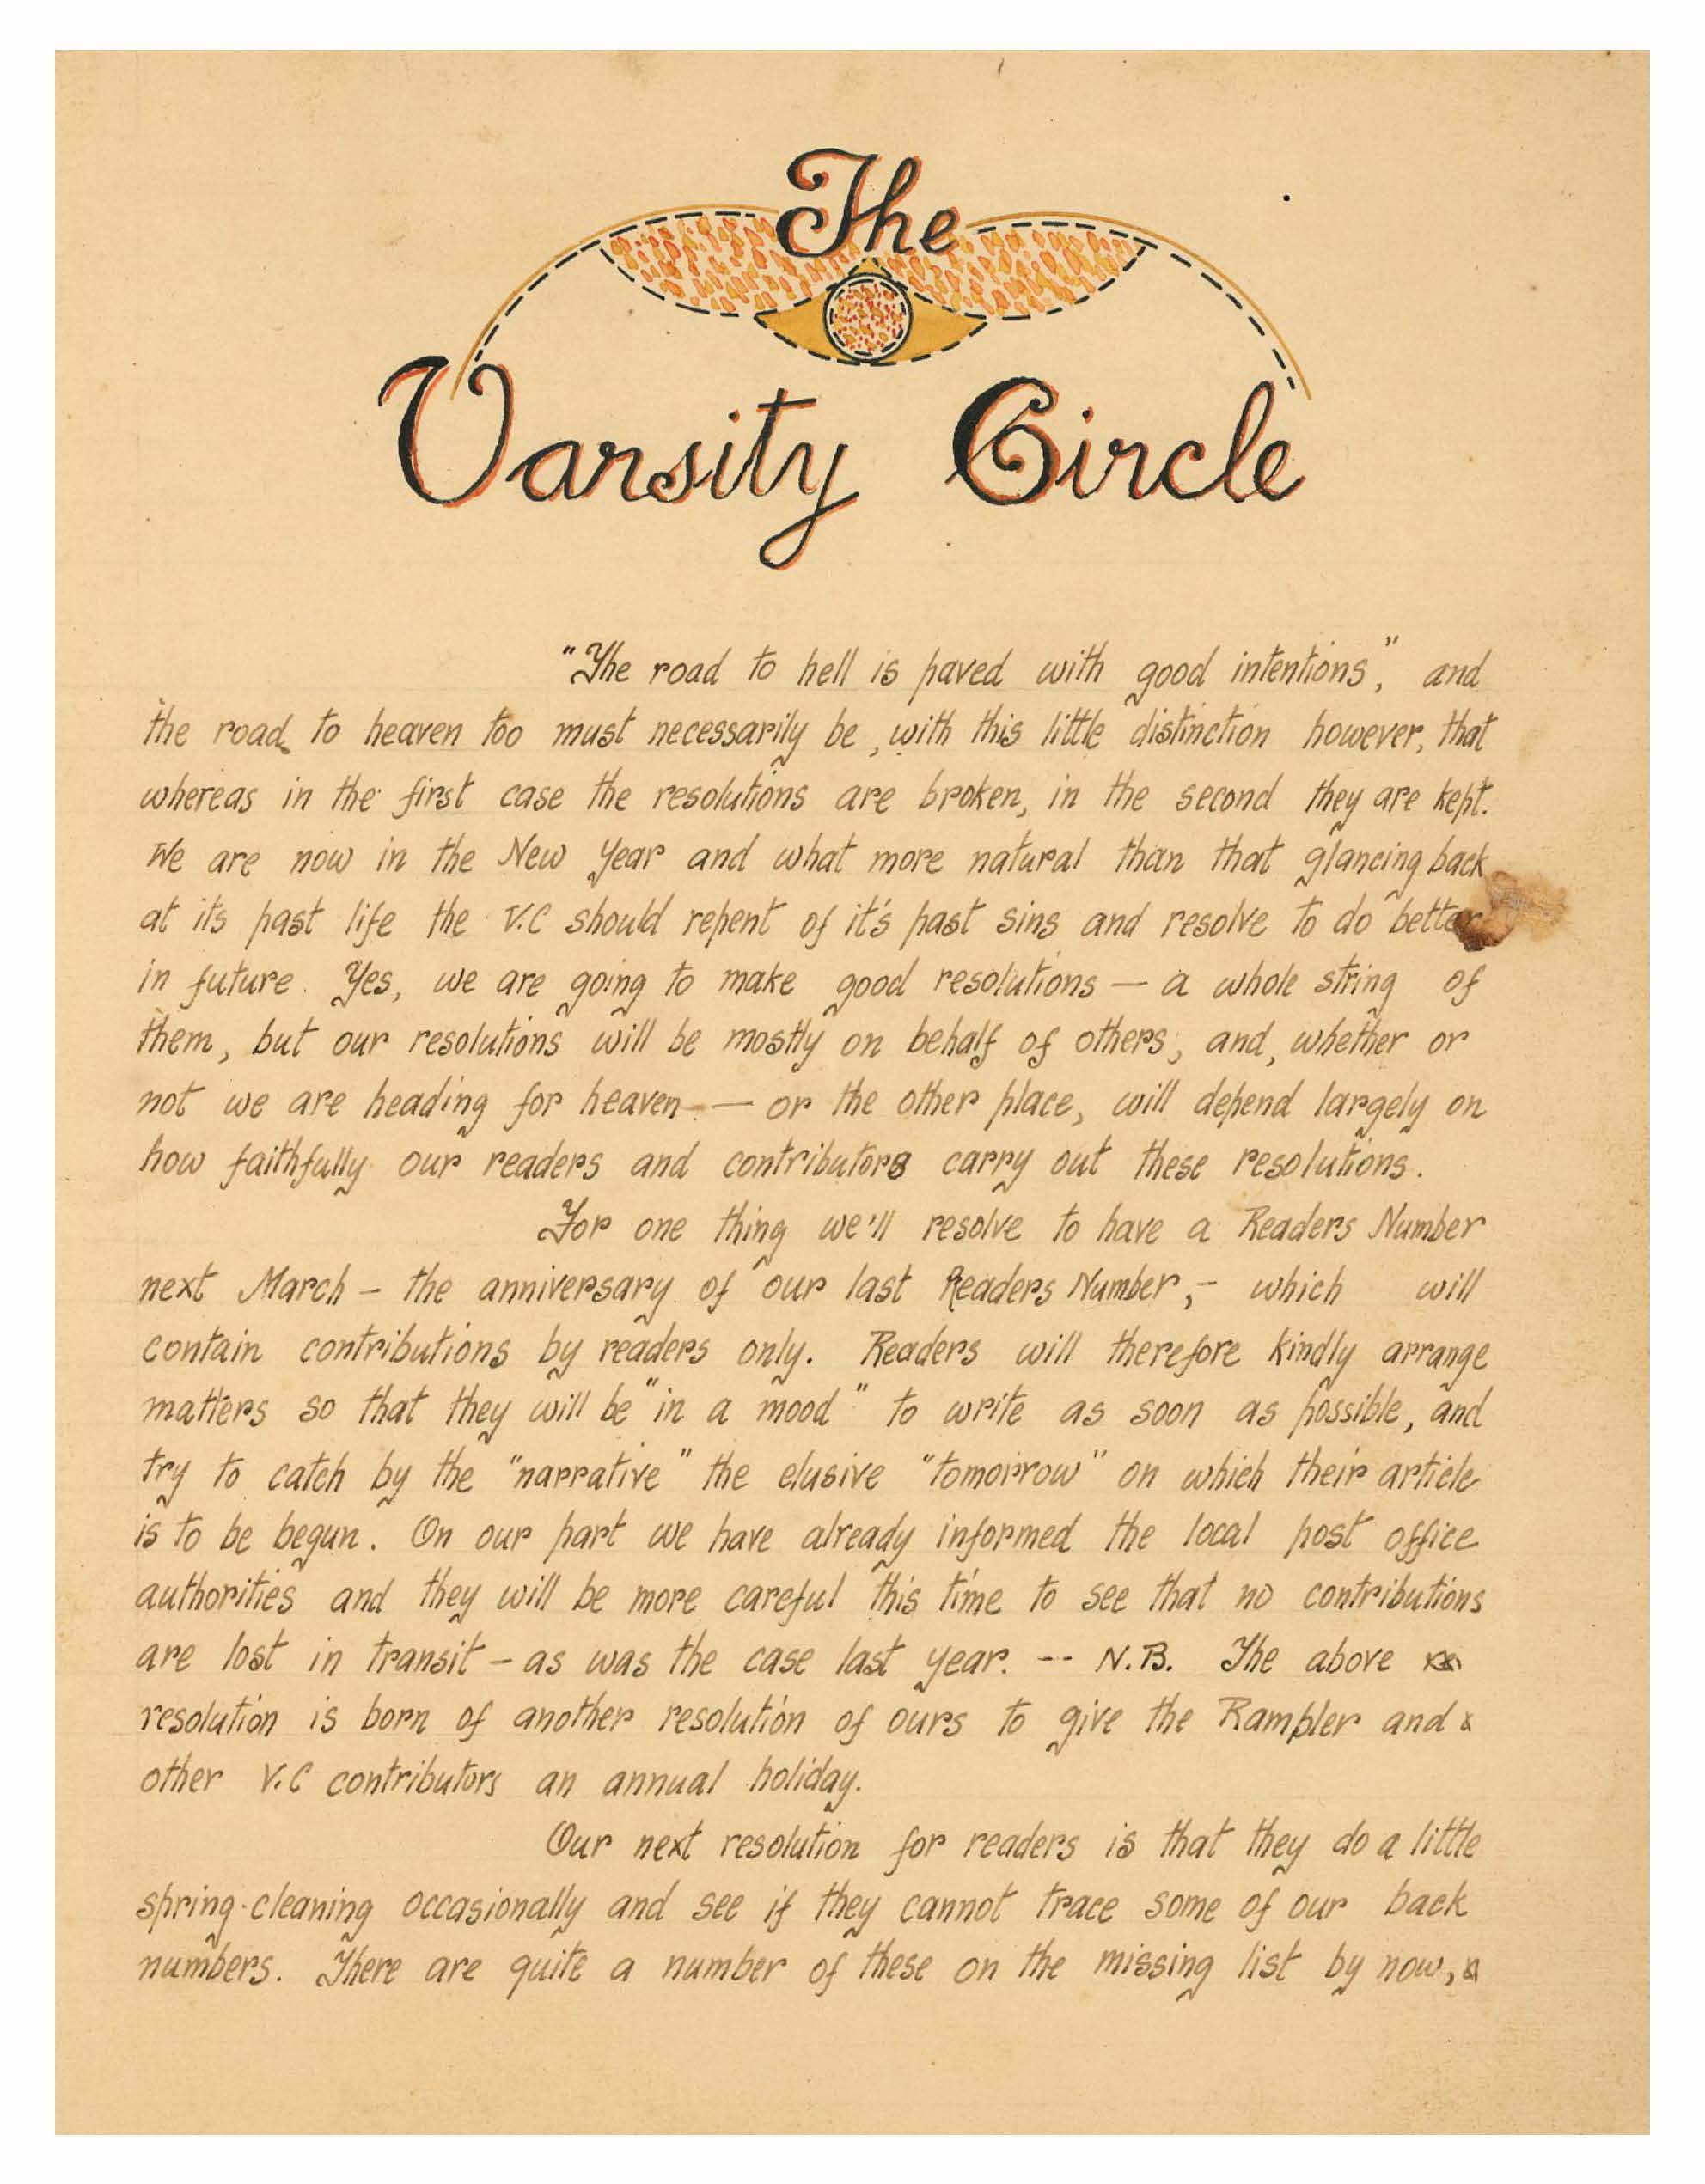 The
Varsity Circle
"The road to hell is paved with good intentions", and
the road to heaven too must necessarily be, with this little distinction however, that
whereas in the first case the resolutions are broken, in the second they are kept.
We are now in the New Year and what more natural than that glancing back
at its past life the V.C should repent of it's past sins and resolve to do better
in future. Yes, we are going to make good resolutions — a whole string of
them, but our resolutions will be mostly on behalf of others; and, whether or
not we are heading for heaven — or the other place, will depend largely on
how faithfully our readers and contributors carry out these resolutions.
For one thing we'll resolve to have a Readers Number
next March - the anniversary of our last Readers Number, - which will
contain contributions by readers only. Readers will therefore kindly arrange
matters so that they will be "in a mood" to write as soon as possible, and
try to catch by the "narrative" the elusive "tomorrow" on which their article
is to be begun. On our part we have already informed the local post office
authorities and they will be more careful this time to see that no contributions
are lost in transit - as was the case last year. -- N.B. The above
resolution is born of another resolution of ours to give the Rambler and
other V.C contributors an annual holiday.
Our next resolution for readers is that they do a little
spring-cleaning occasionally and see if they cannot trace some of our back
numbers. There are quite a number of these on the missing list by now,